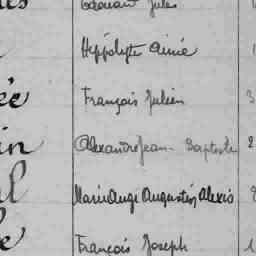 Edouard Jules
Hippolyte Aimé
François Julien 3
Alexandre Jean Baptiste 2
Marie Ange Augustin Alexis
François Joseph 1